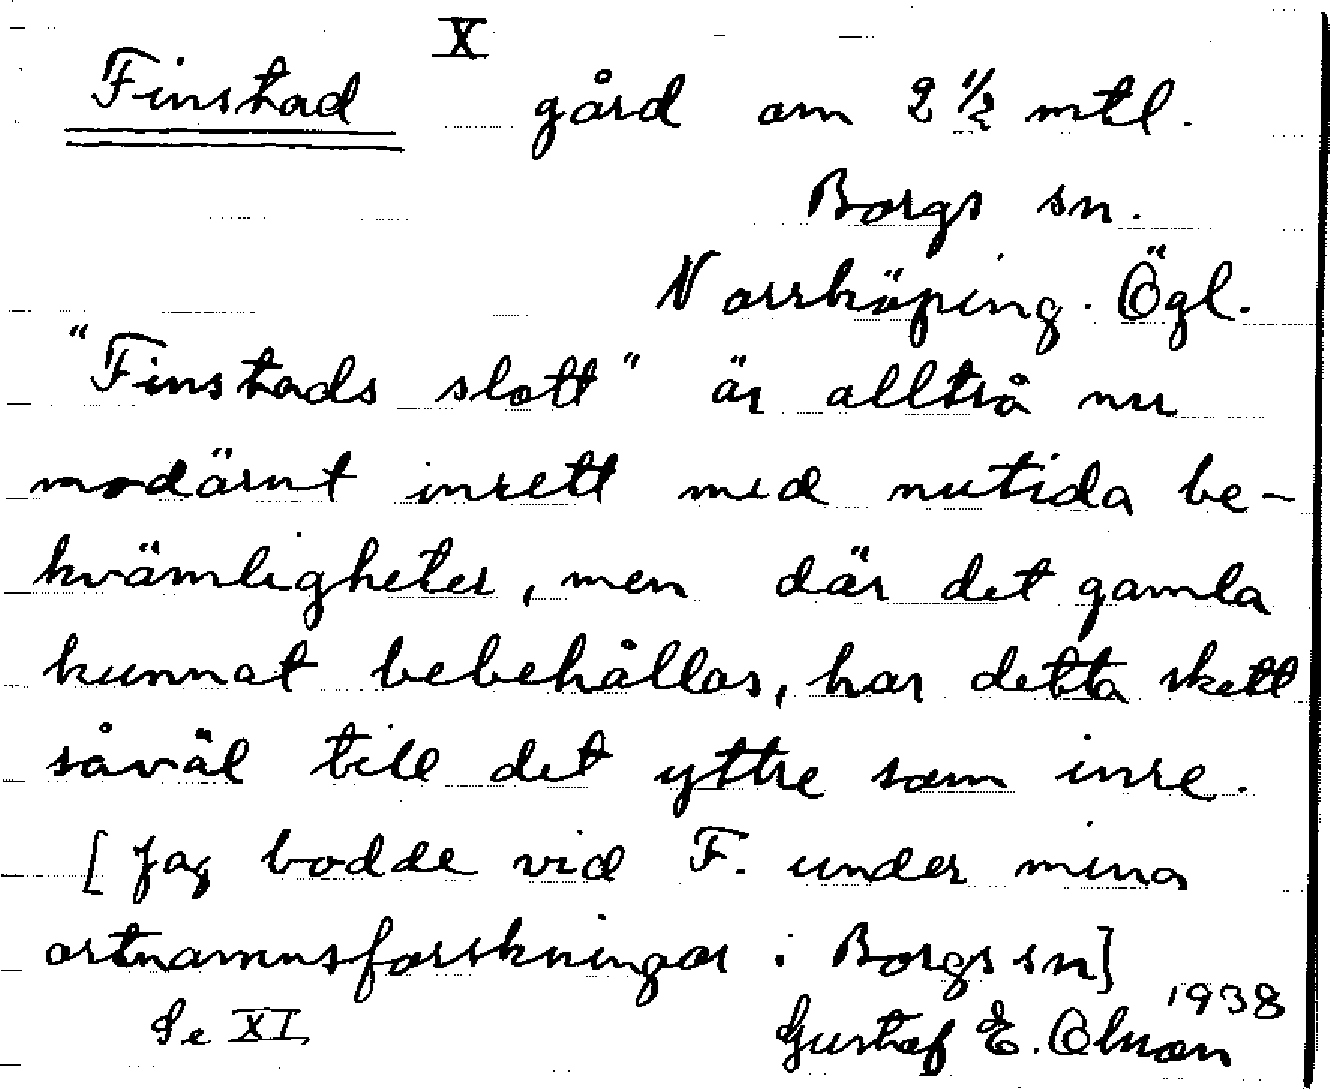 X
Finstad gård om 2 1/2 mtl.
Borgs sn.
Norrköping. Ögl.
"Finstads slott" är alltså nu
modärnt inrett med nutida be-
kvämligheter, men där det gamla
kunnat bebehållas, har detta skett
såväl till det yttre som inre.
[Jag bodde vid F. under mina
ortnamnsforskningar i Borgs sn]
1938
Se XI Gustaf E. Olsson